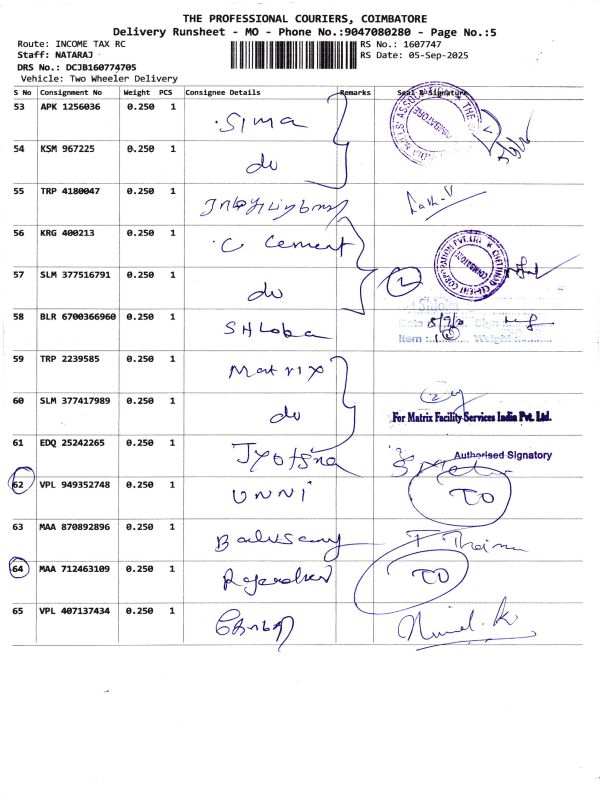 THE PROFESSIONAL COURIERS, COIMBATORE
Delivery Runsheet - MO - Phone No.:9047080280 - Page No.:5
Route: INCOME TAX RC RS No.: 1607747
Staff: NATARAJ RS Date: 05-Sep-2025
DRS No.: DCJB160774705
Vehicle: Two Wheeler Delivery
S No Consignment No Weight PCS Consignee Details Remarks Seal & Signature
53 APK 1256036 0.250 1 Sima
54 KSM 967225 0.250 1 do
55 TRP 4180047 0.250 1
56 KRG 400213 0.250 1 C Cement
57 SLM 377516791 0.250 1 do 2
58 BLR 6700366960 0.250 1 Shloka
59 TRP 2239585 0.250 1 Matrix
60 SLM 377417989 0.250 1 do
For Matrix Facility Services India Pvt. Ltd.
Authorised Signatory
61 EDQ 25242265 0.250 1 Jyotsna
62 VPL 949352748 0.250 1 UNNI TO
63 MAA 870892896 0.250 1
64 MAA 712463109 0.250 1 TO
65 VPL 407137434 0.250 1